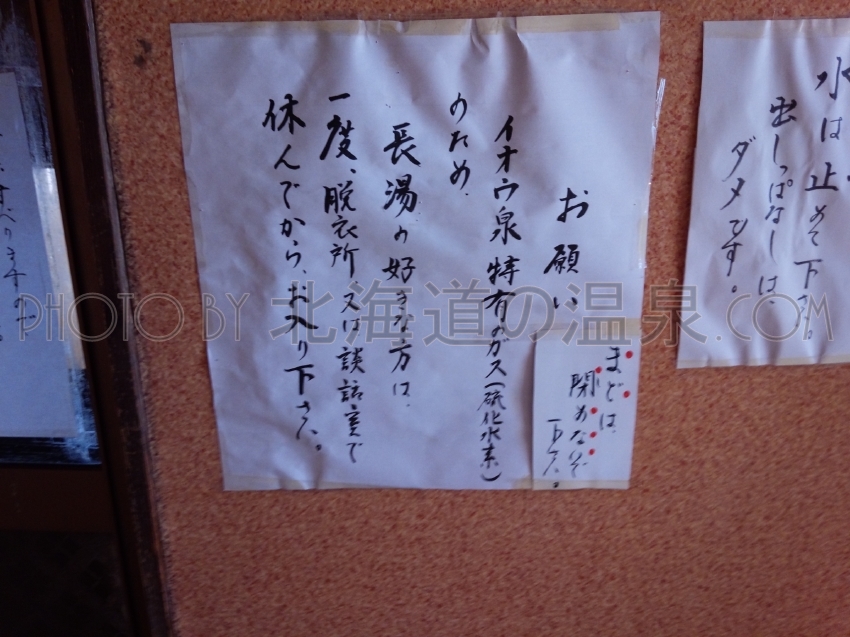 水は止めて下さい。
出しっぱなしは、
ダメです。
お願い
イオウ泉特有のガス(硫化水素)
のため、
長湯の好きな方は、
一度、脱衣所又は談話室で
休んでから、お入り下さい。
まどは、
閉めないで
下さい。
PHOTO BY 北海道の温泉.COM